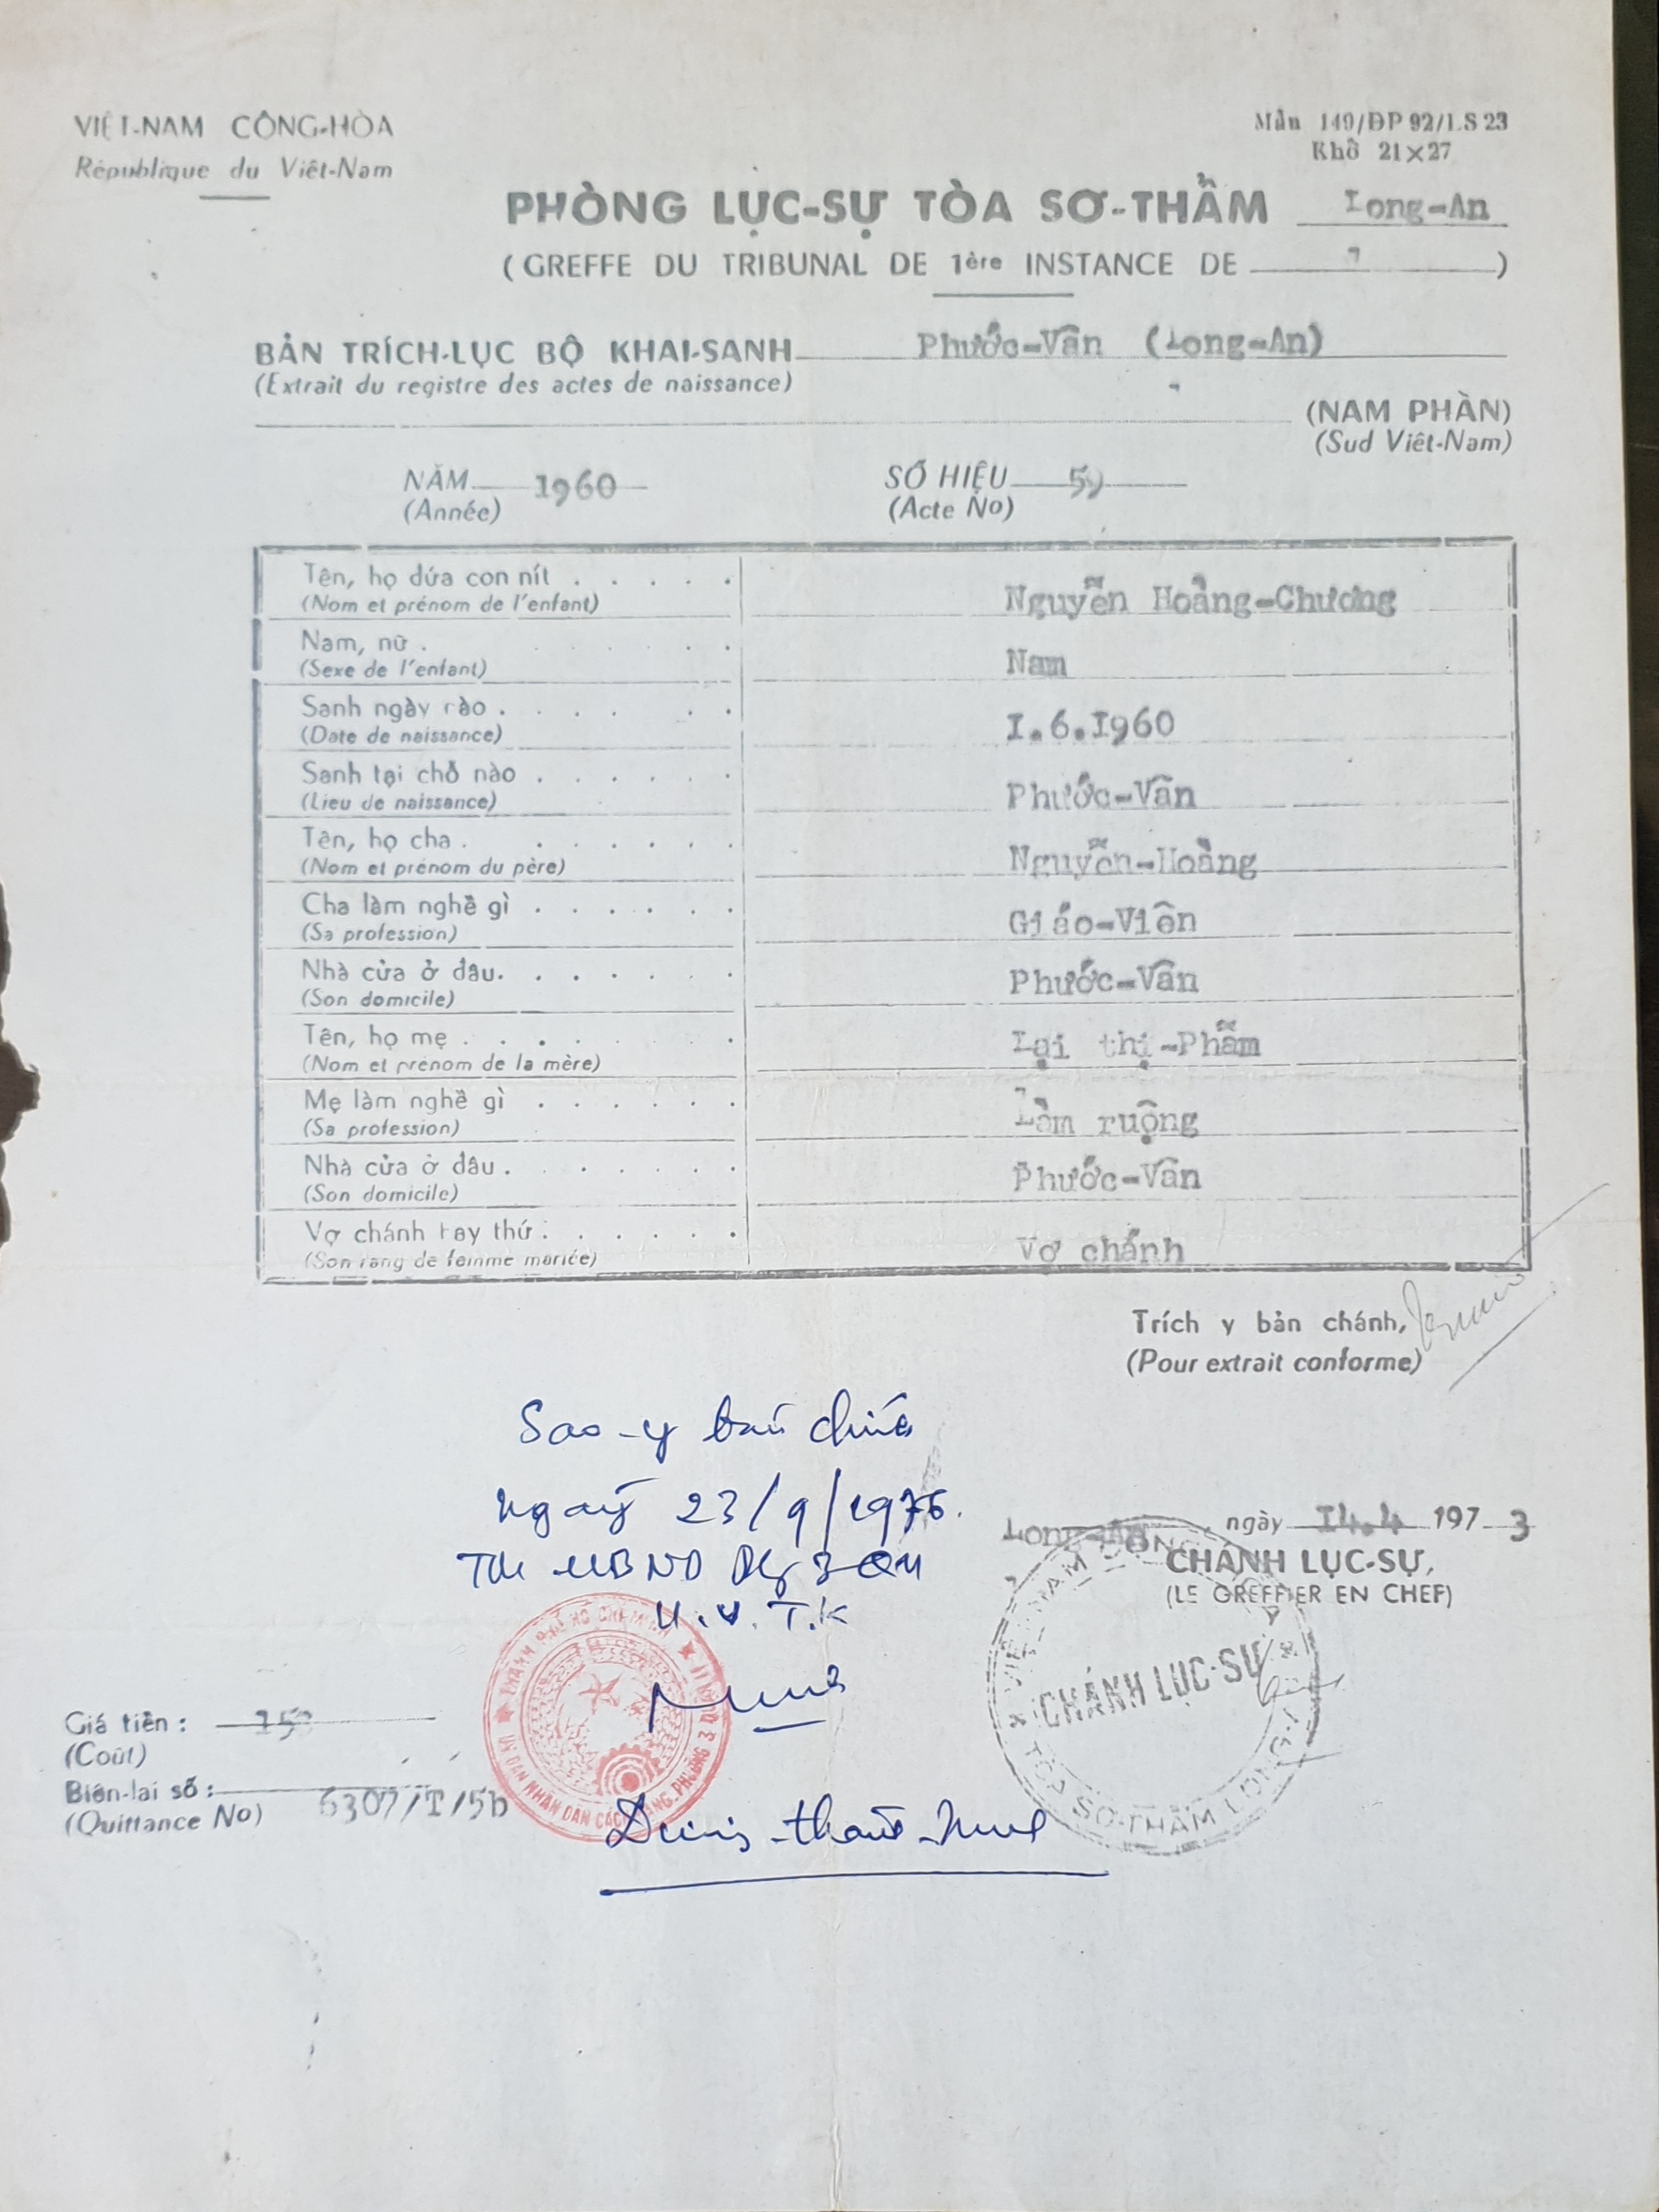 VIỆT-NAM CỘNG-HÒA
République du Viêt-Nam
Mẫu 149/ĐP 92/LS 23
Khổ 21×27
PHÒNG LỤC-SỰ TÒA SƠ-THẨM Long-An
(GREFFE DU TRIBUNAL DE 1ère INSTANCE DE )
BẢN TRÍCH-LỤC BỘ KHAI-SANH Phước-Vân (Long-An)
(Extrait du registre des actes de naissance)
(NAM PHẦN)
(Sud Viêt-Nam)
NĂM 1960 SỐ HIỆU 59
(Année) (Acte No)
Tên, họ đứa con nít . . . . . Nguyễn Hoàng-Chương
(Nom et prénom de l'enfant)
Nam, nữ . . . . . . Nam
(Sexe de l'enfant)
Sanh ngày nào . . . . . . I.6.I960
(Date de naissance)
Sanh tại chỗ nào . . . . . . Phước-Vân
(Lieu de naissance)
Tên, họ cha . . . . . . Nguyễn-Hoàng
(Nom et prénom du père)
Cha làm nghề gì . . . . . . Giáo-Viên
(Sa profession)
Nhà cửa ở đâu. . . . . . Phước-Vân
(Son domicile)
Tên, họ mẹ . . . . . . Lại thị-Phẩm
(Nom et prénom de la mère)
Mẹ làm nghề gì . . . . . . Làm ruộng
(Sa profession)
Nhà cửa ở đâu . . . . . . Phước-Vân
(Son domicile)
Vợ chánh hay thứ . . . . . . Vợ chánh
(Son rang de femme mariée)
Trích y bản chánh,
(Pour extrait conforme)
Sao-y bản chính
Ngày 23/9/1976.
TM UBND
U.V.T.K
Long-An, ngày I4.4 1973
CHÁNH LỤC-SỰ,
(LE GREFFIER EN CHEF)
CHÁNH LỤC-SỰ
VIỆT NAM CỘNG
TÒA SƠ-THẨM LONG-AN
THÀNH PHỐ HỒ CHÍ MINH
ỦY BAN NHÂN DÂN CÁCH MẠNG PHƯỜNG 3
Giá tiền : 15
(Coût)
Biên-lai số : 6307/T/5b
(Quittance No)